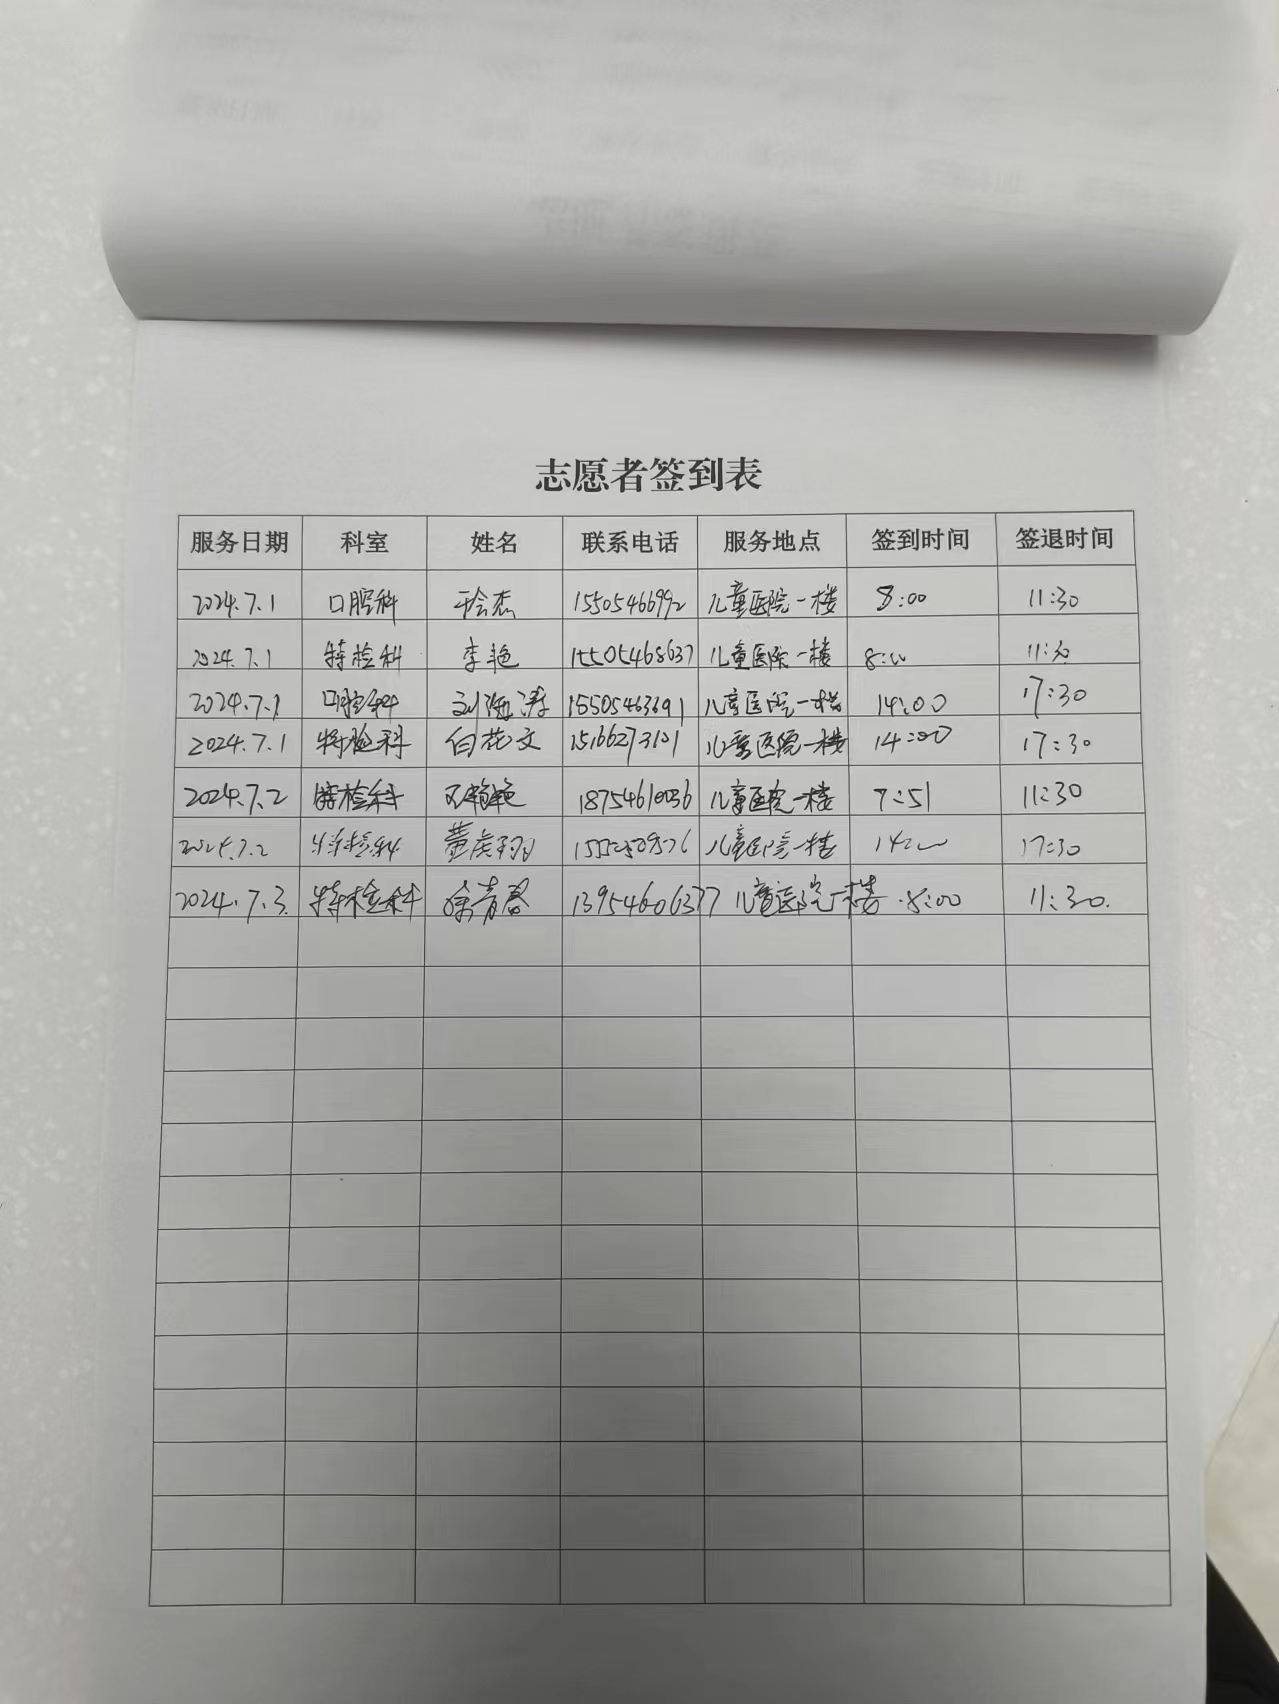 志愿者签到表
服务日期 科室 姓名 联系电话 服务地点 签到时间 签退时间
2024.7.1 口腔科 15505466992 儿童医院一楼 8:00 11:30
2024.7.1 特检科 李艳 15505468637 儿童医院一楼 8:00 11:30
2024.7.1 口腔科 刘海涛 15505463691 儿童医院一楼 14:00 17:30
2024.7.1 特检科 白花文 15166273101 儿童医院一楼 14:00 17:30
2024.7.2 特检科 18754610036 儿童医院一楼 7:51 11:30
2024.7.2 特检科 儿童医院一楼 14:00 17:30
2024.7.3. 特检科 徐青春 13954606377 儿童医院一楼 8:00 11:30.